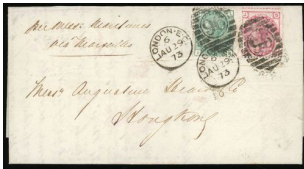 Via Marseilles
LONDON·E.C
6
AU 29
73
LONDON·E.C
6
AU 29
73
Messrs Augustine Heard & Co
Hongkong